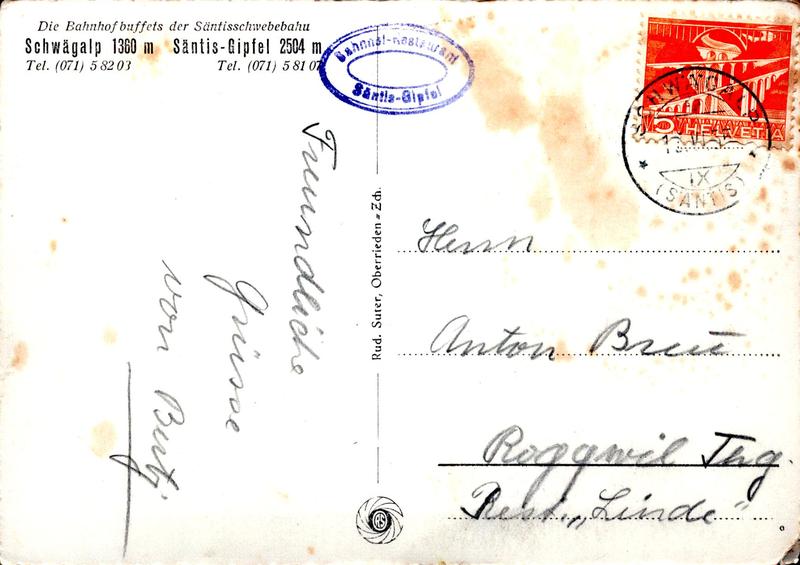 Die Bahnhofbuffets der Säntisschwebebahn
Schwägalp 1360 m Säntis-Gipfel 2504 m
Tel. (071) 5 82 03 Tel. (071) 5 81 07
Bahnhof-Restaurant
Säntis-Gipfel
5 HELVETIA
IX
(SÄNTIS)
Freundliche
Grüsse
von
Rud. Suter, Oberrieden-Zch.
Herrn
Anton
Roggwil Thg.
Rest. „Linde"